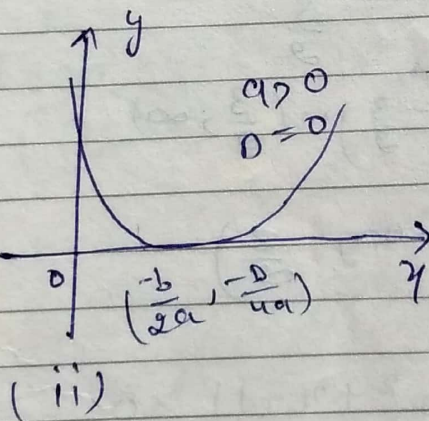 y
a > 0
D = 0
0
(-b/2a, -D/4a)
x
(ii)